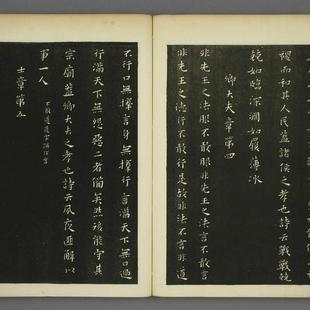 稷而和其人民蓋諸侯之孝也詩云戰戰兢
兢如臨深淵如履薄冰
卿大夫章第四
非先王之法服不敢服非先王之法言不敢言
非先王之德行不敢行是故非法不言非道
不行口無擇言身無擇行言滿天下無口過
行滿天下無怨惡三者備矣然後能守其
宗廟蓋卿大夫之孝也詩云夙夜匪懈以
事一人
不敢道道字誤作言
士章第五